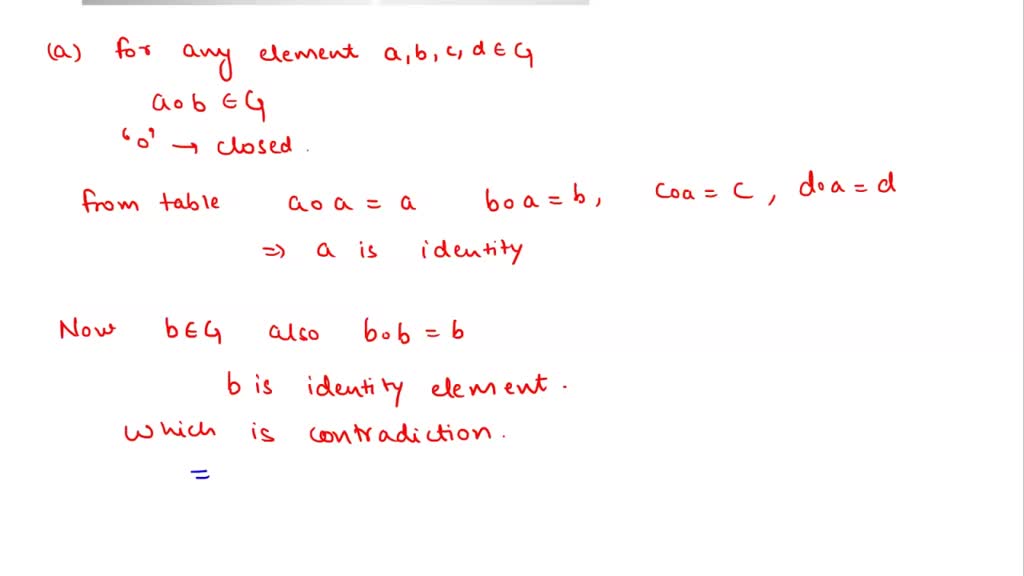 (a) for any element a, b, c, d ∈ G
a o b ∈ G
'o' → closed.
from table a o a = a b o a = b, c o a = c, d o a = d
⇒ a is identity
Now b ∈ G also b o b = b
b is identity element.
which is contradiction.
=